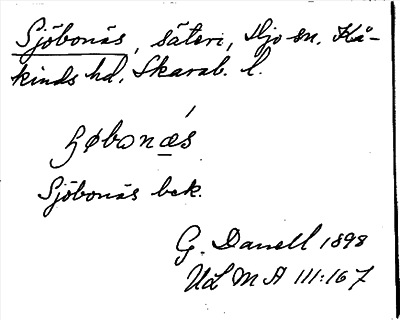 Sjöbonäs, säteri, Hjo sn, Kå-
kinds hd, Skarab. l.
Sjöbonäs bek.
G. Danell 1898
ULMA 111:167